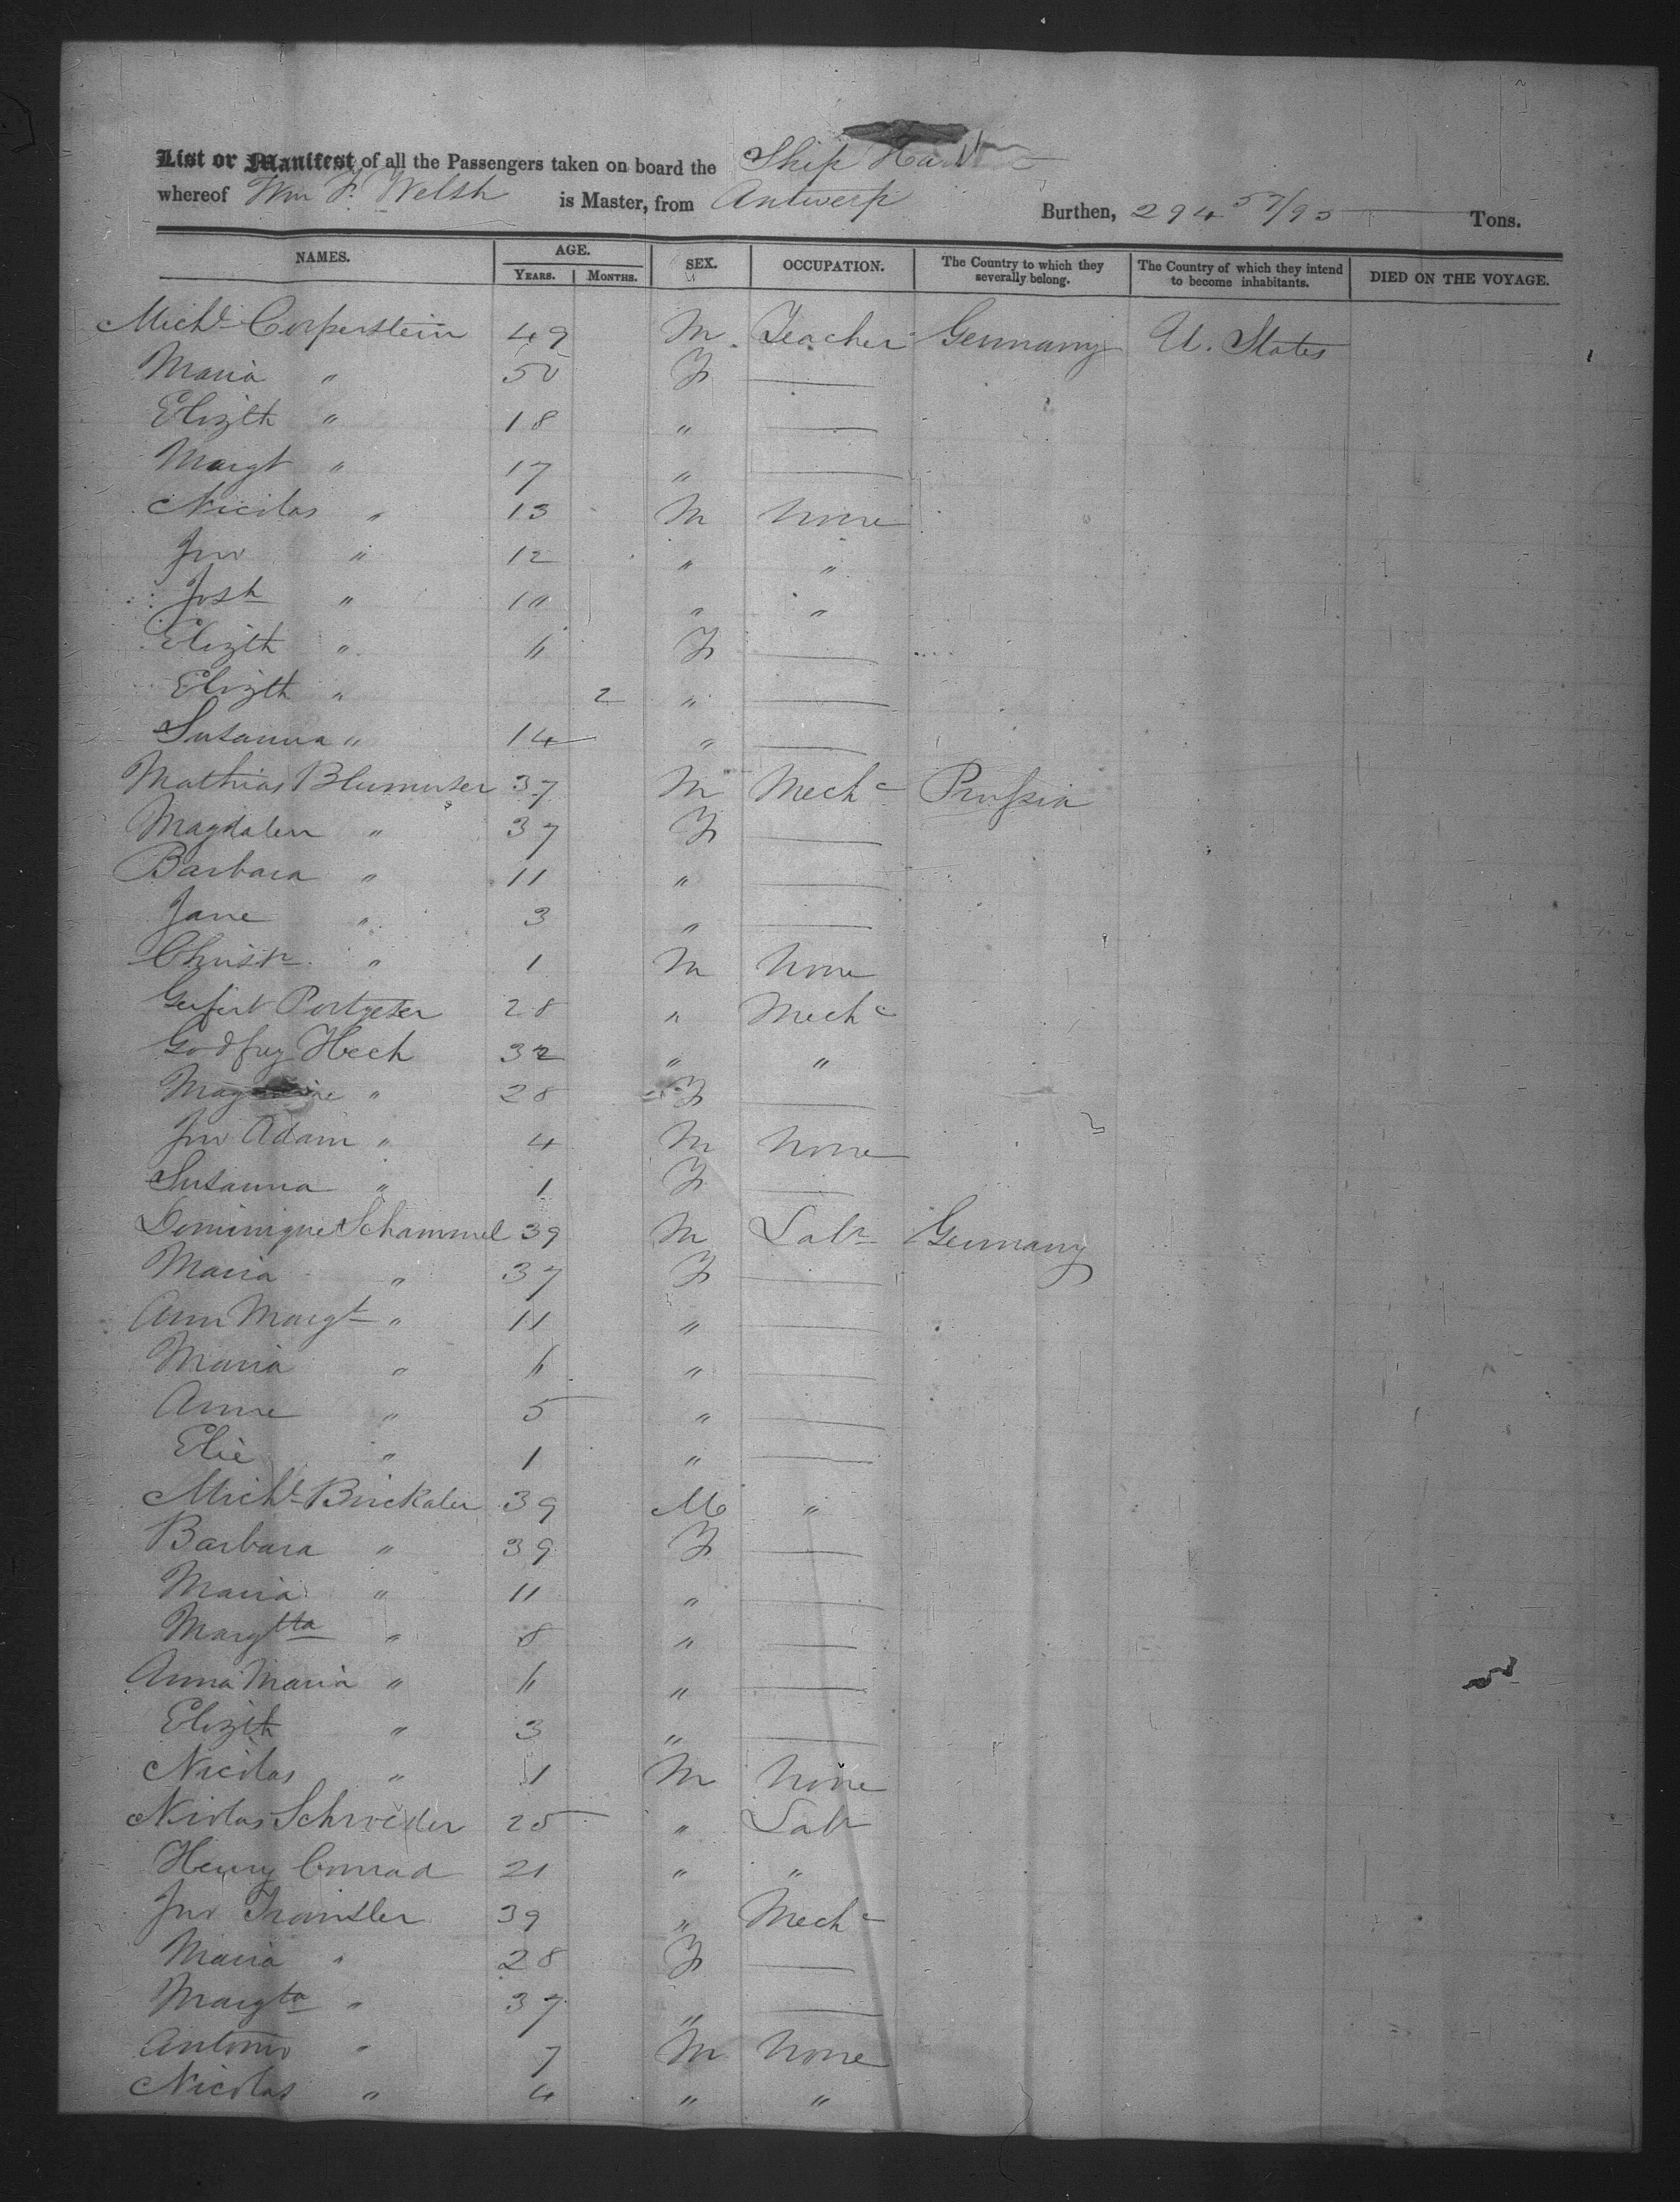 List or Manifest of all the Passengers taken on board the Ship
whereof Wm F. Welsh is Master, from Antwerp Burthen, 294 Tons.
NAMES. AGE. SEX. OCCUPATION. The Country to which they severally belong. The Country of which they intend to become inhabitants. DIED ON THE VOYAGE.
YEARS. MONTHS.
Michl Corperstein 49 M Teacher Germany U. States
Maria " 50 F
Elizth " 18 "
Margt " 17 "
Nicolas " 13 M None
Jno " 12 " "
Josh " 10 " "
Elizth " 6 F
Elizth " 2 "
Susanna " 14 "
Mathias 37 M Mechc Prussia
Magdalen " 37 F
Barbara " 11 "
Jane " 3 "
Christn " 1 M None
Portgeter 28 " Mechc
Godfrey Hech 32 " "
" 28 F
Jno Adam " 4 M None
Susanna " 1 F
Dominique Schammel 39 M Labr Germany
Maria " 37 F
Ann Margt " 11 "
Maria " 6 "
Anne " 5 "
Elie " 1 "
Michl Birckaler 39 M "
Barbara " 39 F
Maria " 11 "
Margtta " 8 "
Anna Maria " 6 "
Elizth " 3 "
Nicolas " 1 M None
Nicolas Schroeder 25 " Labr
Henry Conrad 21 " "
Jno 39 " Mechc
Maria " 28 F
Margta " 37 "
Antonio " 7 M None
Nicolas " 4 " "